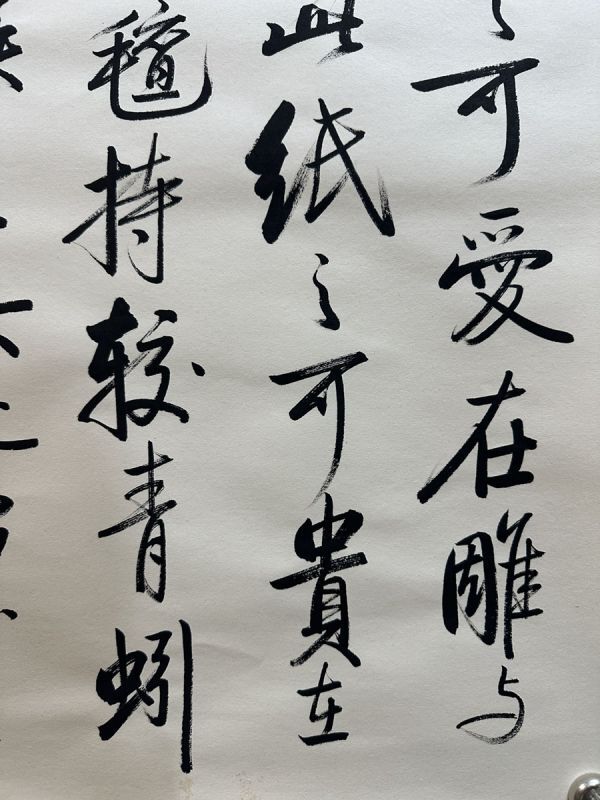 之可愛在雕与
此紙之可貴在
氊持較青蚓